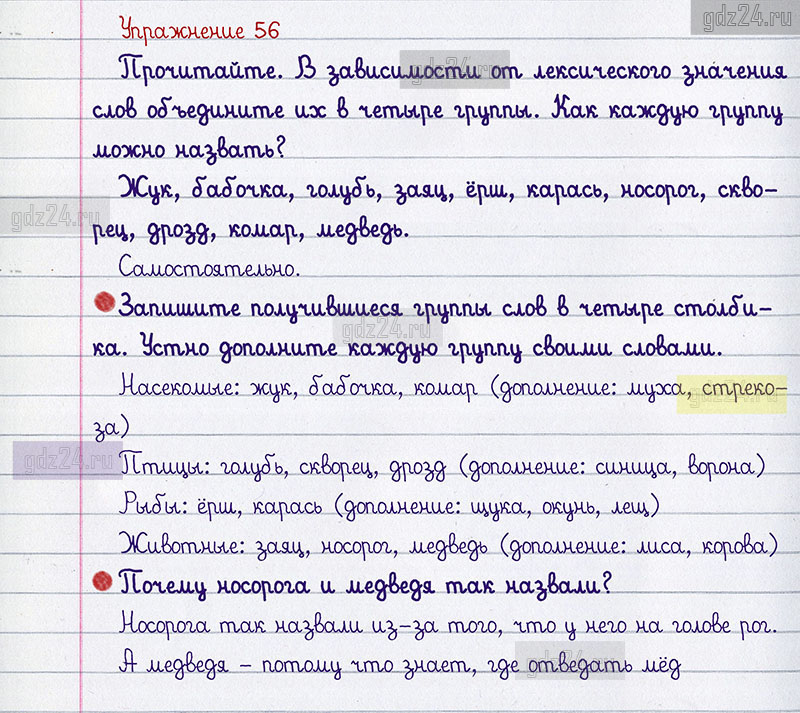 gdz24.ru
Упражнение 56
Прочитайте. В зависимости от лексического значения
слов объедините их в четыре группы. Как каждую группу
можно назвать?
Жук, бабочка, голубь, заяц, ёрш, карась, носорог, сквo-
рец, дрозд, комар, медведь.
Самостоятельно.
Запишите получившиеся группы слов в четыре столби-
ка. Устно дополните каждую группу своими словами.
Насекомые: жук, бабочка, комар (дополнение: муха, стреко-
за)
Птицы: голубь, скворец, дрозд (дополнение: синица, ворона)
Рыбы: ёрш, карась (дополнение: щука, окунь, лещ)
Животные: заяц, носорог, медведь (дополнение: лиса, корова)
Почему носорога и медведя так назвали?
Носорога так назвали из-за того, что у него на голове рог.
А медведя – потому что знает, где отведать мёд